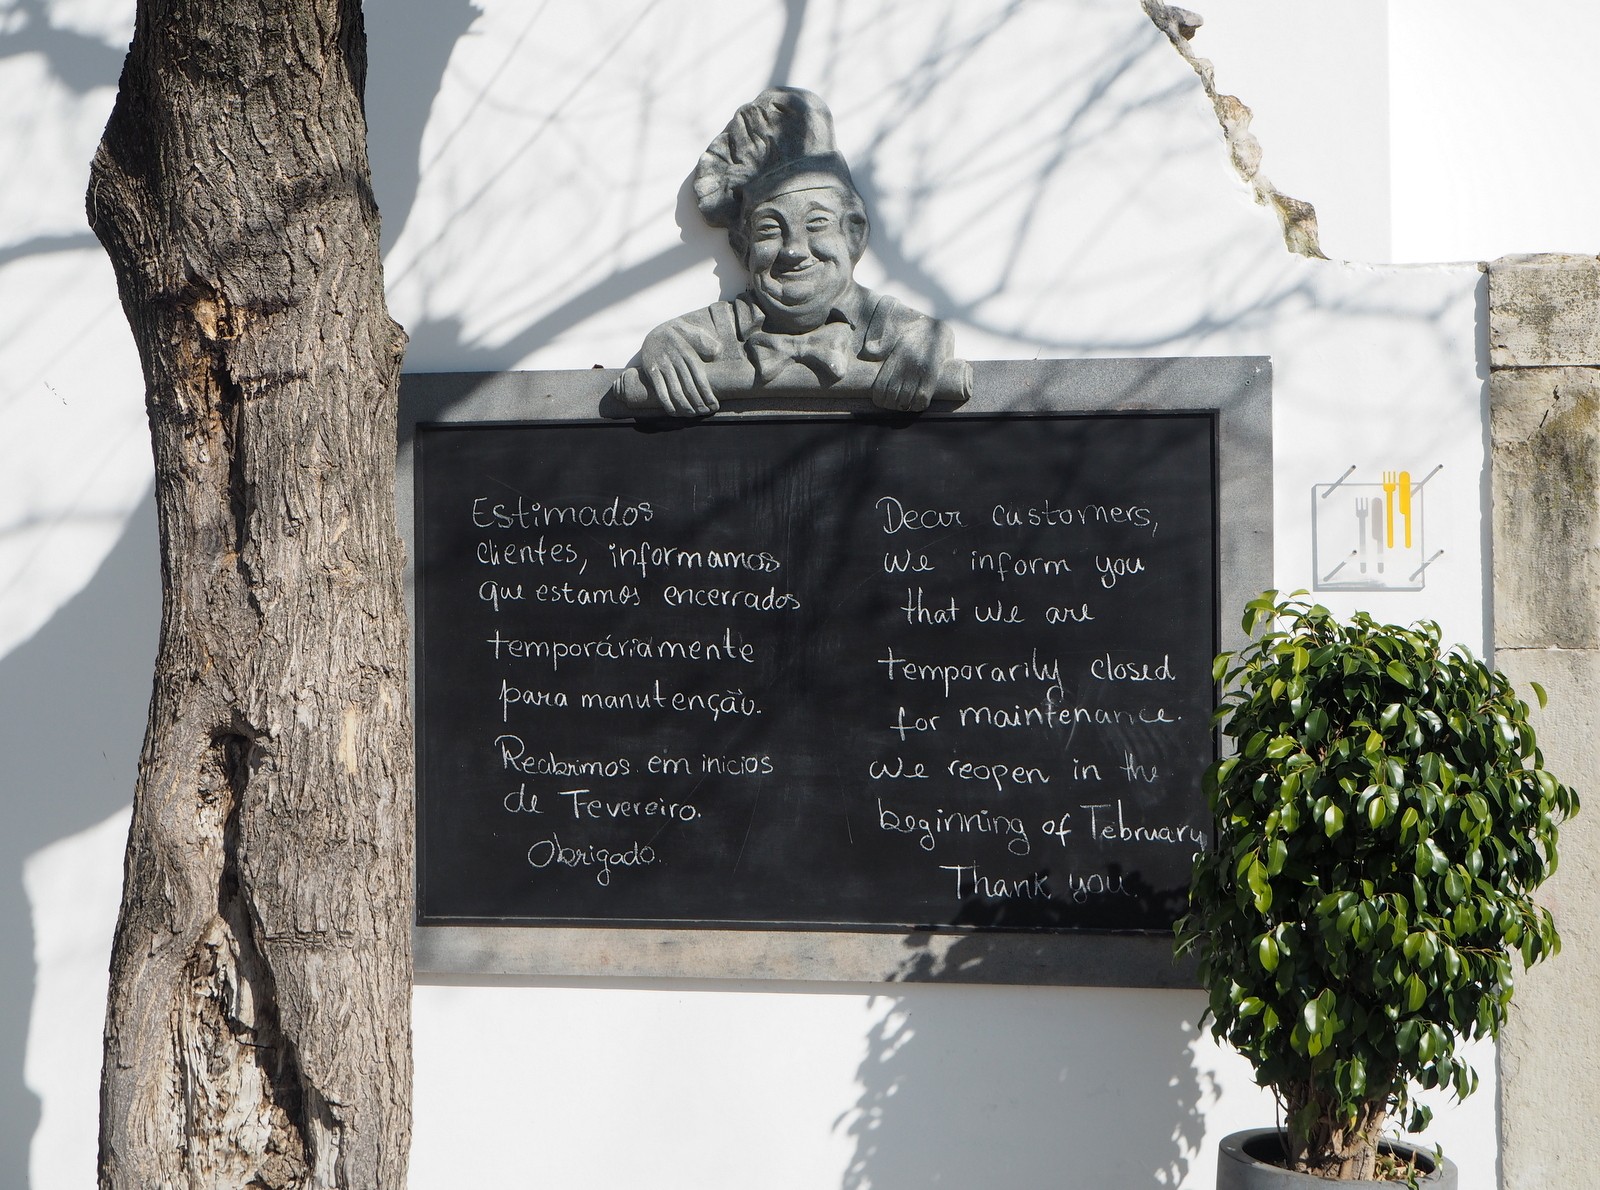 Estimados
clientes, informamos
que estamos encerrados
temporáriamente
para manutenção.
Reabrimos em inicios
de Fevereiro.
Obrigado.
Dear customers,
we inform you
that we are
temporarily closed
for maintenance.
we reopen in the
beginning of February
Thank you.